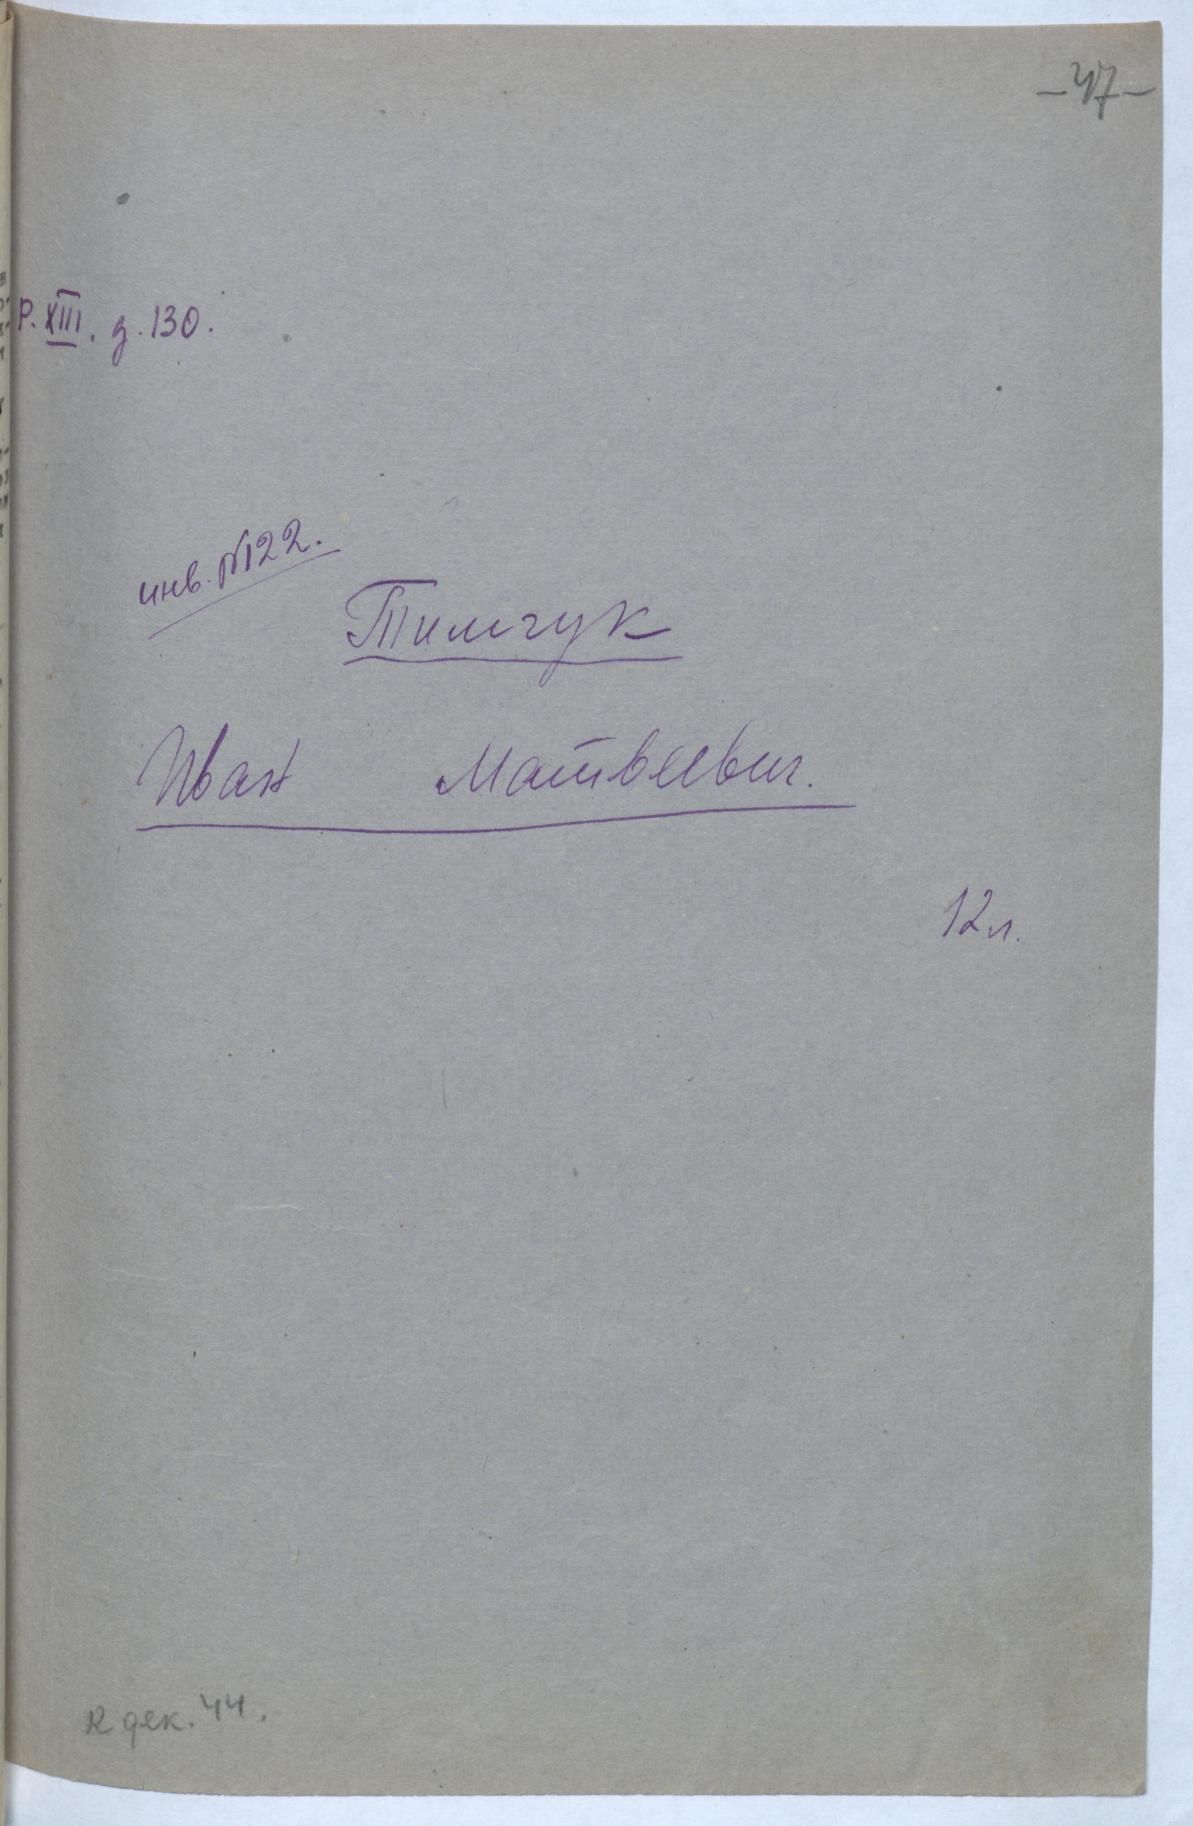 -47-
Р. XIII. д. 130.
инв. №122.
Тимчук
Иван Матвеевич.
12 л.
дек. 44.